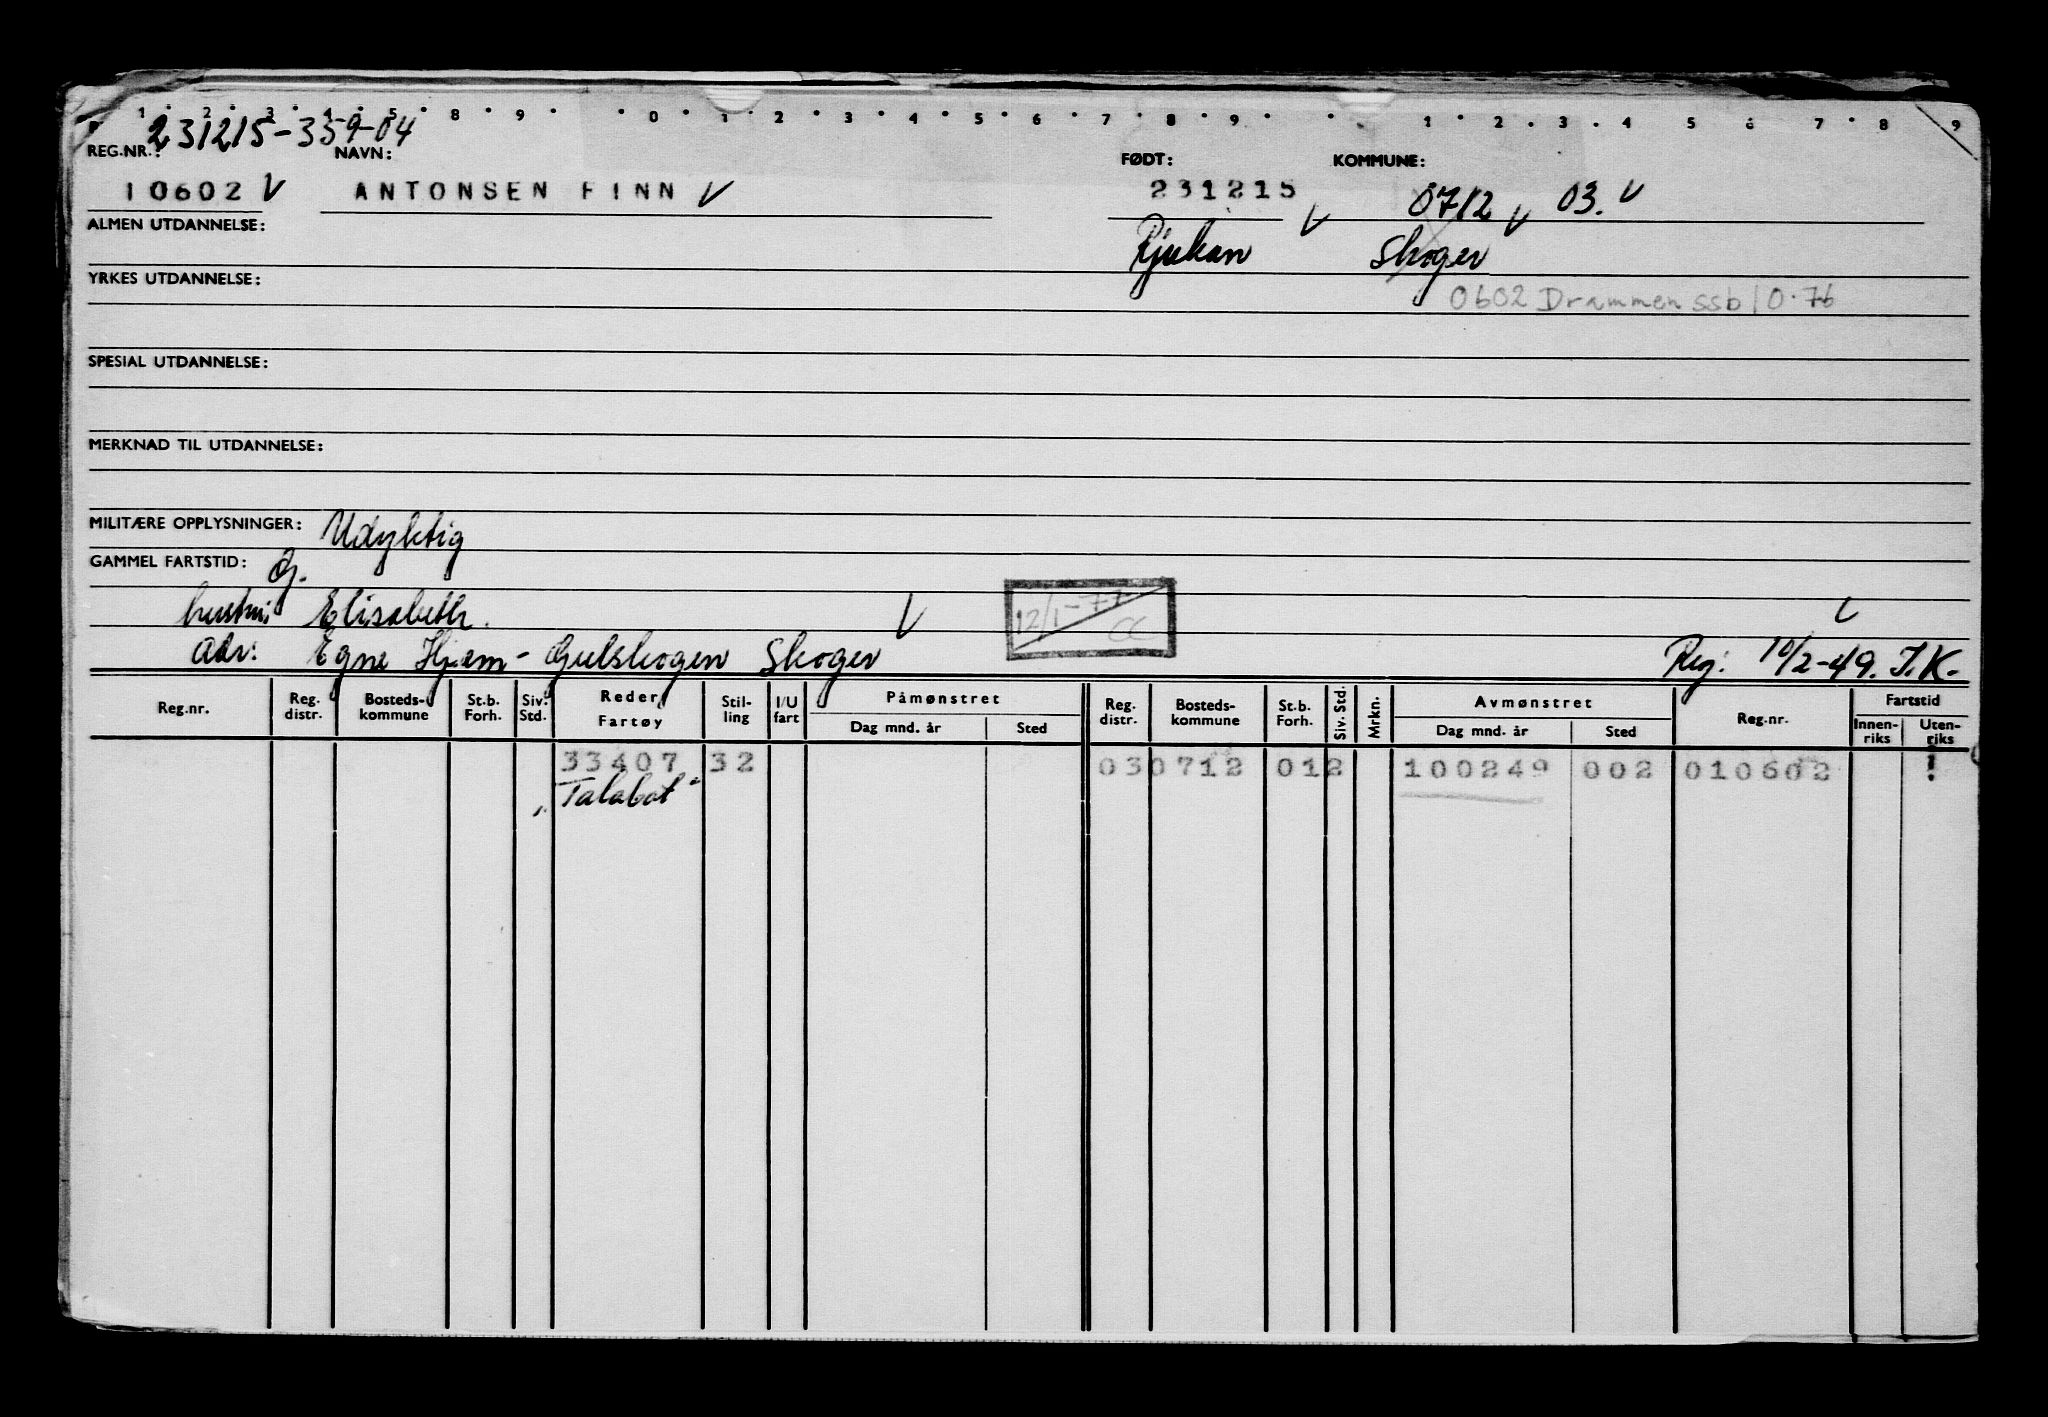 1 2 3 4 5 8 9 0 1 2 3 4 5 6 7 8 9 1 2 3 4 5 6 7 8 9
231215-359-04
REG.NR.: NAVN: FØDT: KOMMUNE:
10602 V ANTONSEN FINN V 231215 V 0712 V 03. V
ALMEN UTDANNELSE: Rjukan Skoger
YRKES UTDANNELSE: 0602 Drammen ssb 10.76
SPESIAL UTDANNELSE:
MERKNAD TIL UTDANNELSE:
MILITÆRE OPPLYSNINGER: Udyktig
GAMMEL FARTSTID:
hustru: Elisabeth. V 12/1-77 CC
Adr: Egne Hjem - Gulskogen Skoger Reg: 10/2-49. I.K.
Reg.nr. Reg. distr. Bosteds-kommune St.b. Forh. Siv. Std. Reder Fartøy Stil-ling I/U fart Påmønstret Dag mnd. år Sted Reg. distr. Bosteds-kommune St.b. Forh. Siv. Std. Mrkn. Avmønstret Dag mnd. år Sted Reg.nr. Fartstid Innen-riks Uten-riks
33407 32 030712 012 100249 002 010602
"Talabot"